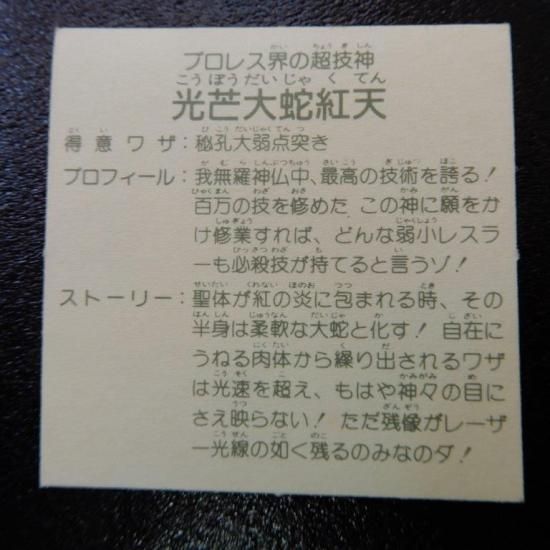 プロレス界の超技神
光芒大蛇紅天
得意ワザ：秘孔大弱点突き
プロフィール：我無羅神仏中、最高の技術を誇る！
百万の技を修めた この神に願をか
け修業すれば、どんな弱小レスラ
ーも必殺技が持てると言うゾ！
ストーリー：聖体が紅の炎に包まれる時、その
半身は柔軟な大蛇と化す！ 自在に
うねる肉体から繰り出されるワザ
は光速を超え、もはや神々の目に
さえ映らない！ ただ残像がレーザ
ー光線の如く残るのみなのダ！